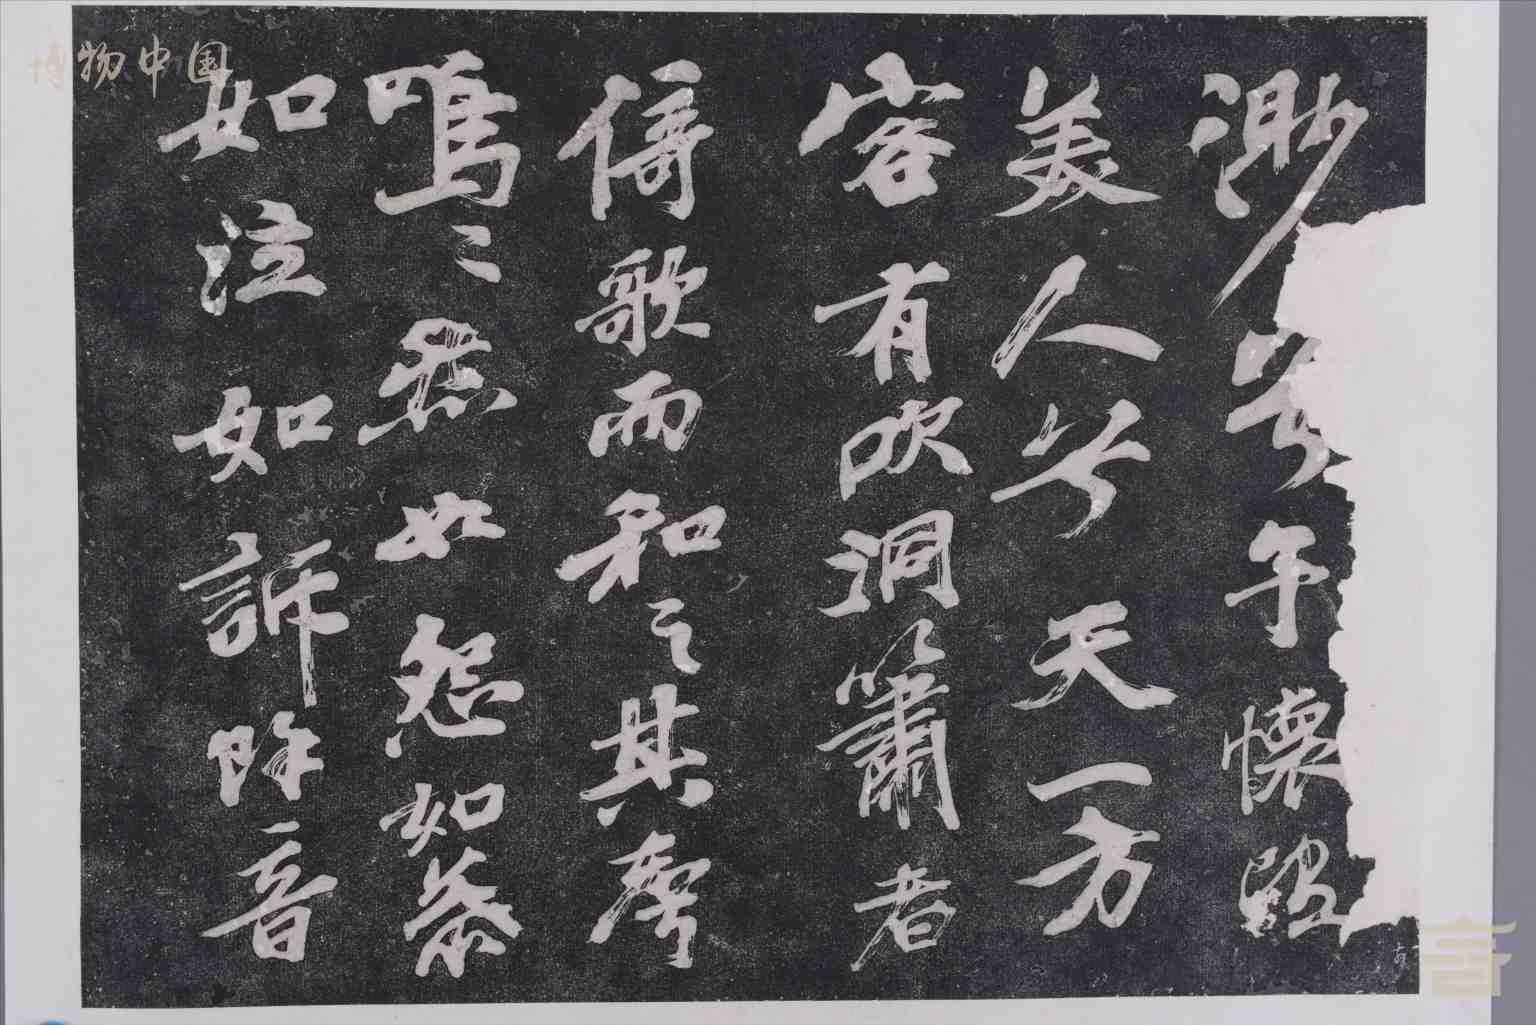 博物中国
渺兮予懷望
美人兮天一方
客有吹洞簫者
倚歌而和之其聲
嗚〻然如怨如慕
如泣如訴餘音